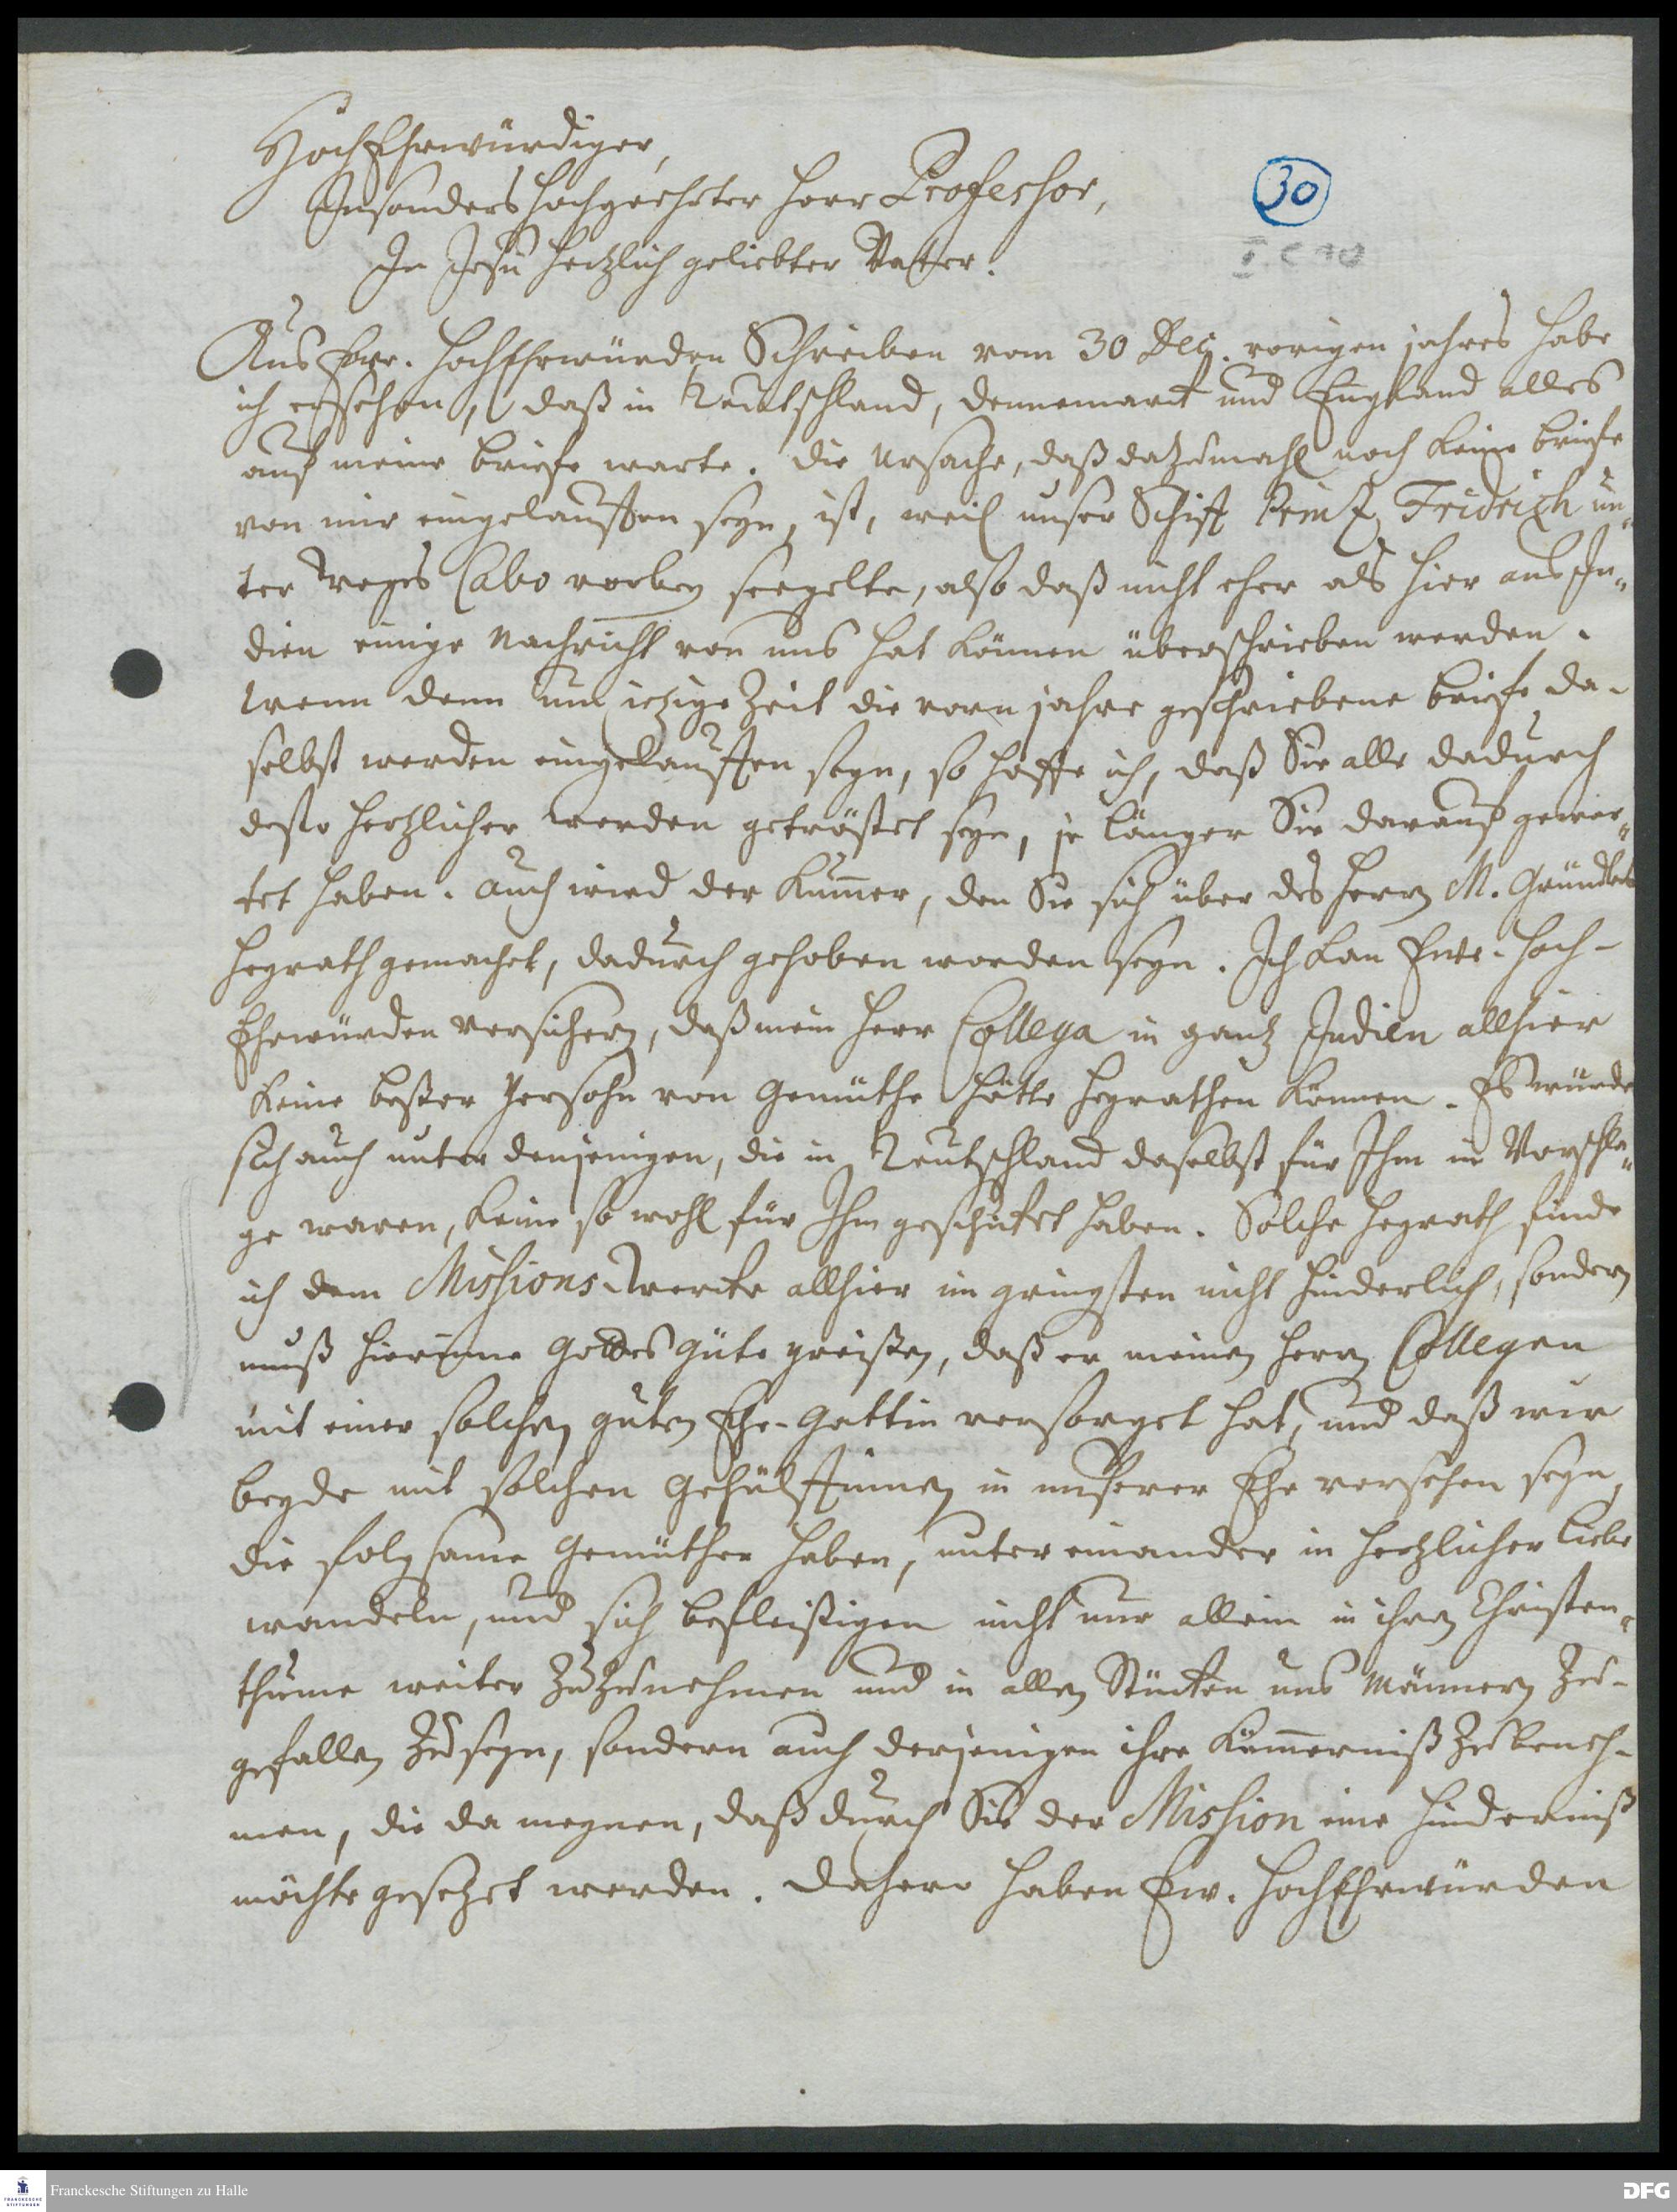 HochEhrwürdiger,
Insonders Hochgeehrter Herr Professor,
In Jesu hertzlich geliebter Vatter.
30
I C 10
Aus Ewr. HochEhrwürden Schreiben vom 30 Dec. vorigen jahres habe
ich ersehen, daß in Teutschland, Dennemarck und England alles
auf meine briefe warte. Die Ursache, daß dazumahl noch keine briefe
von mir eingelauffen seyn, ist, weil unser Schiff Printz Fridrich un„
ter weges Cabo vorbey seegelte, also daß nicht eher als hier aus In„
dien einige Nachricht von uns hat können überschrieben werden.
Wenn denn um ietzige Zeit die vorm jahre geschriebene briefe da-
selbst werden eingelauffen seyn, so hoffe ich, daß Sie alle dadurch
desto hertzlicher werden getröstet seyn, je länger Sie darauf gewar„
tet haben. Auch wird der Kum̄er, den Sie sich über des Herrn M. Gründlers
Heyrath gemachet, dadurch gehoben worden seyn. Ich kan Ewr. Hoch-
Ehrwürden versichern, daß mein Herr Collega in gantz Indien allhier
keine beßer Persohn von Gemüthe hätte heyrathen können. Es würde
sich auch unter denjenigen, die in Teutschland daselbst für Ihm in Vorschla„
ge waren, keine so wohl für Ihm geschicket haben. Solche Heyrath finde
ich dem Missions-wercke allhier im gringsten nicht hinderlich, sondern
muß hierinne Gottes Güte preißen, daß er meinen Herrn Collegen
mit einer solchen guten Ehe-Gattin versorget hat, und daß wir
beyde mit solchen Gehülffinnen in unserer Ehe versehen seyn,
die folgsame Gemüther haben, unter einander in hertzlicher Liebe
wandeln, und sich befleißigen nicht nur allein in ihren Christen„
thume weiter zuzunehmen und in allen Stücken uns Männern zu-
gefallen zu seyn, sondern auch derjenigen ihre Küm̄erniß zu beneh-
men, die da meynen, daß durch Sie der Mission eine Hinderniß
möchte gesetzet werden. Dahero haben Ew. HochEhrwürden
Franckesche Stiftungen zu Halle
DFG